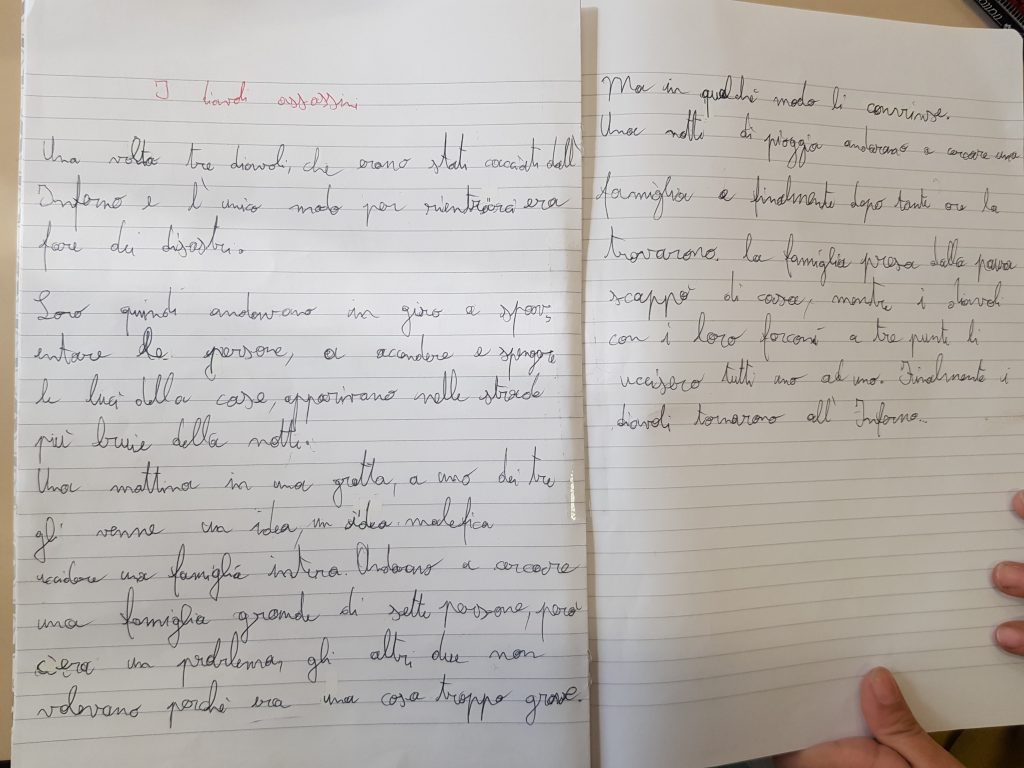 I diavoli assassini
Una volta tre diavoli, che erano stati cacciati dall'
Inferno e l'unico modo per rientrarci era
fare dei disastri.
Loro quindi andavano in giro a spav,
entare le persone, a accendere e spengere
le luci della case, apparivano nelle strade
più buie della notte.
Una mattina in una grotta, a uno dei tre
gli venne un idea, un idea malefica
uccidere una famiglia intera. Andarono a cercare
una famiglia grande di sette persone, però
c'era un problema, gli altri due non
volevano perchè era una cosa troppo grave.
Ma in qualchè modo li convinse.
Una notte di pioggia andarono a cercare una
famiglia e finalmente dopo tante ore la
trovarono. La famiglia presa dalla paura
scappò di casa, mentre i diavoli
con i loro forconi a tre punte li
uccisero tutti uno ad uno. Finalmente i
diavoli tornarono all'Inferno..